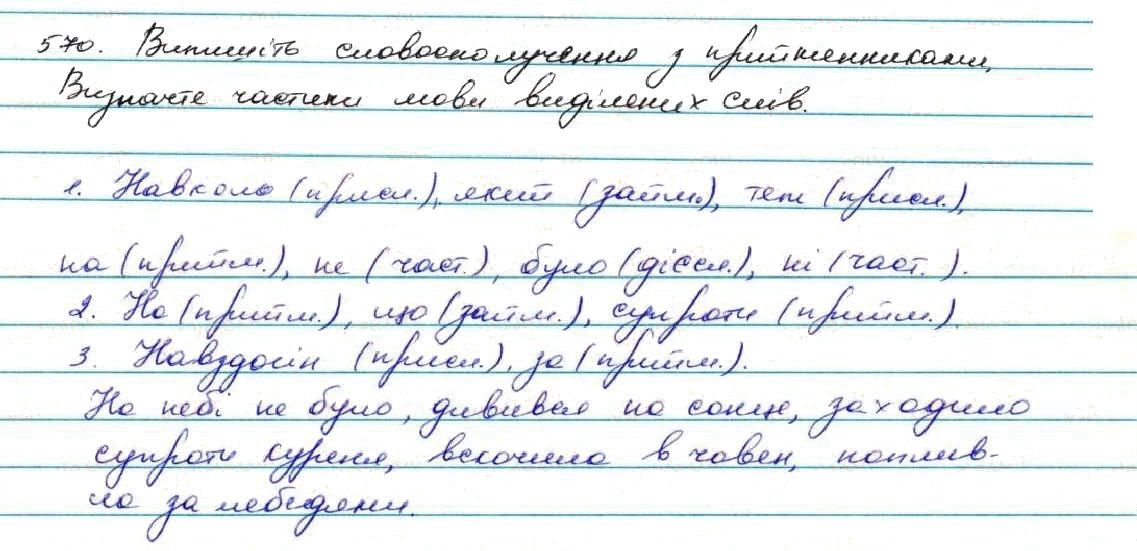 570. Випишіть словосполучення з прийменниками,
Визначте частини мови виділених слів.
1. Навколо (присл.), який (займ.), теж (присл.),
на (прийм.), не (част.), було (дієсл.), ні (част.).
2. На (прийм.), що (займ.), супроти (прийм.).
3. Навздогін (присл.), за (прийм.).
На небі не було, дивився на сонце, заходило
супроти куреня, вскочила в човен, поплив-
ла за лебедями.